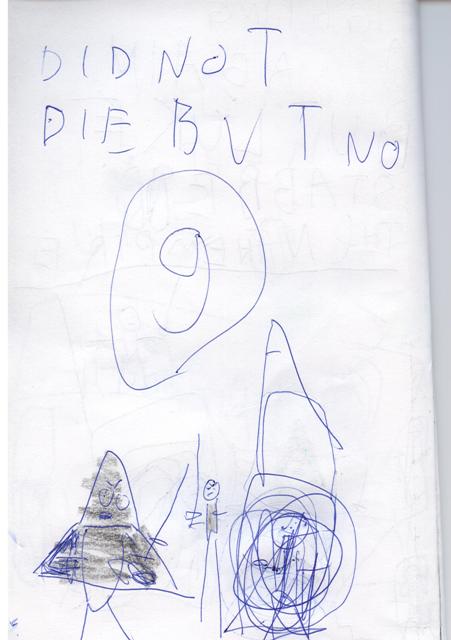 DID NOT
DIE BUT NO
9